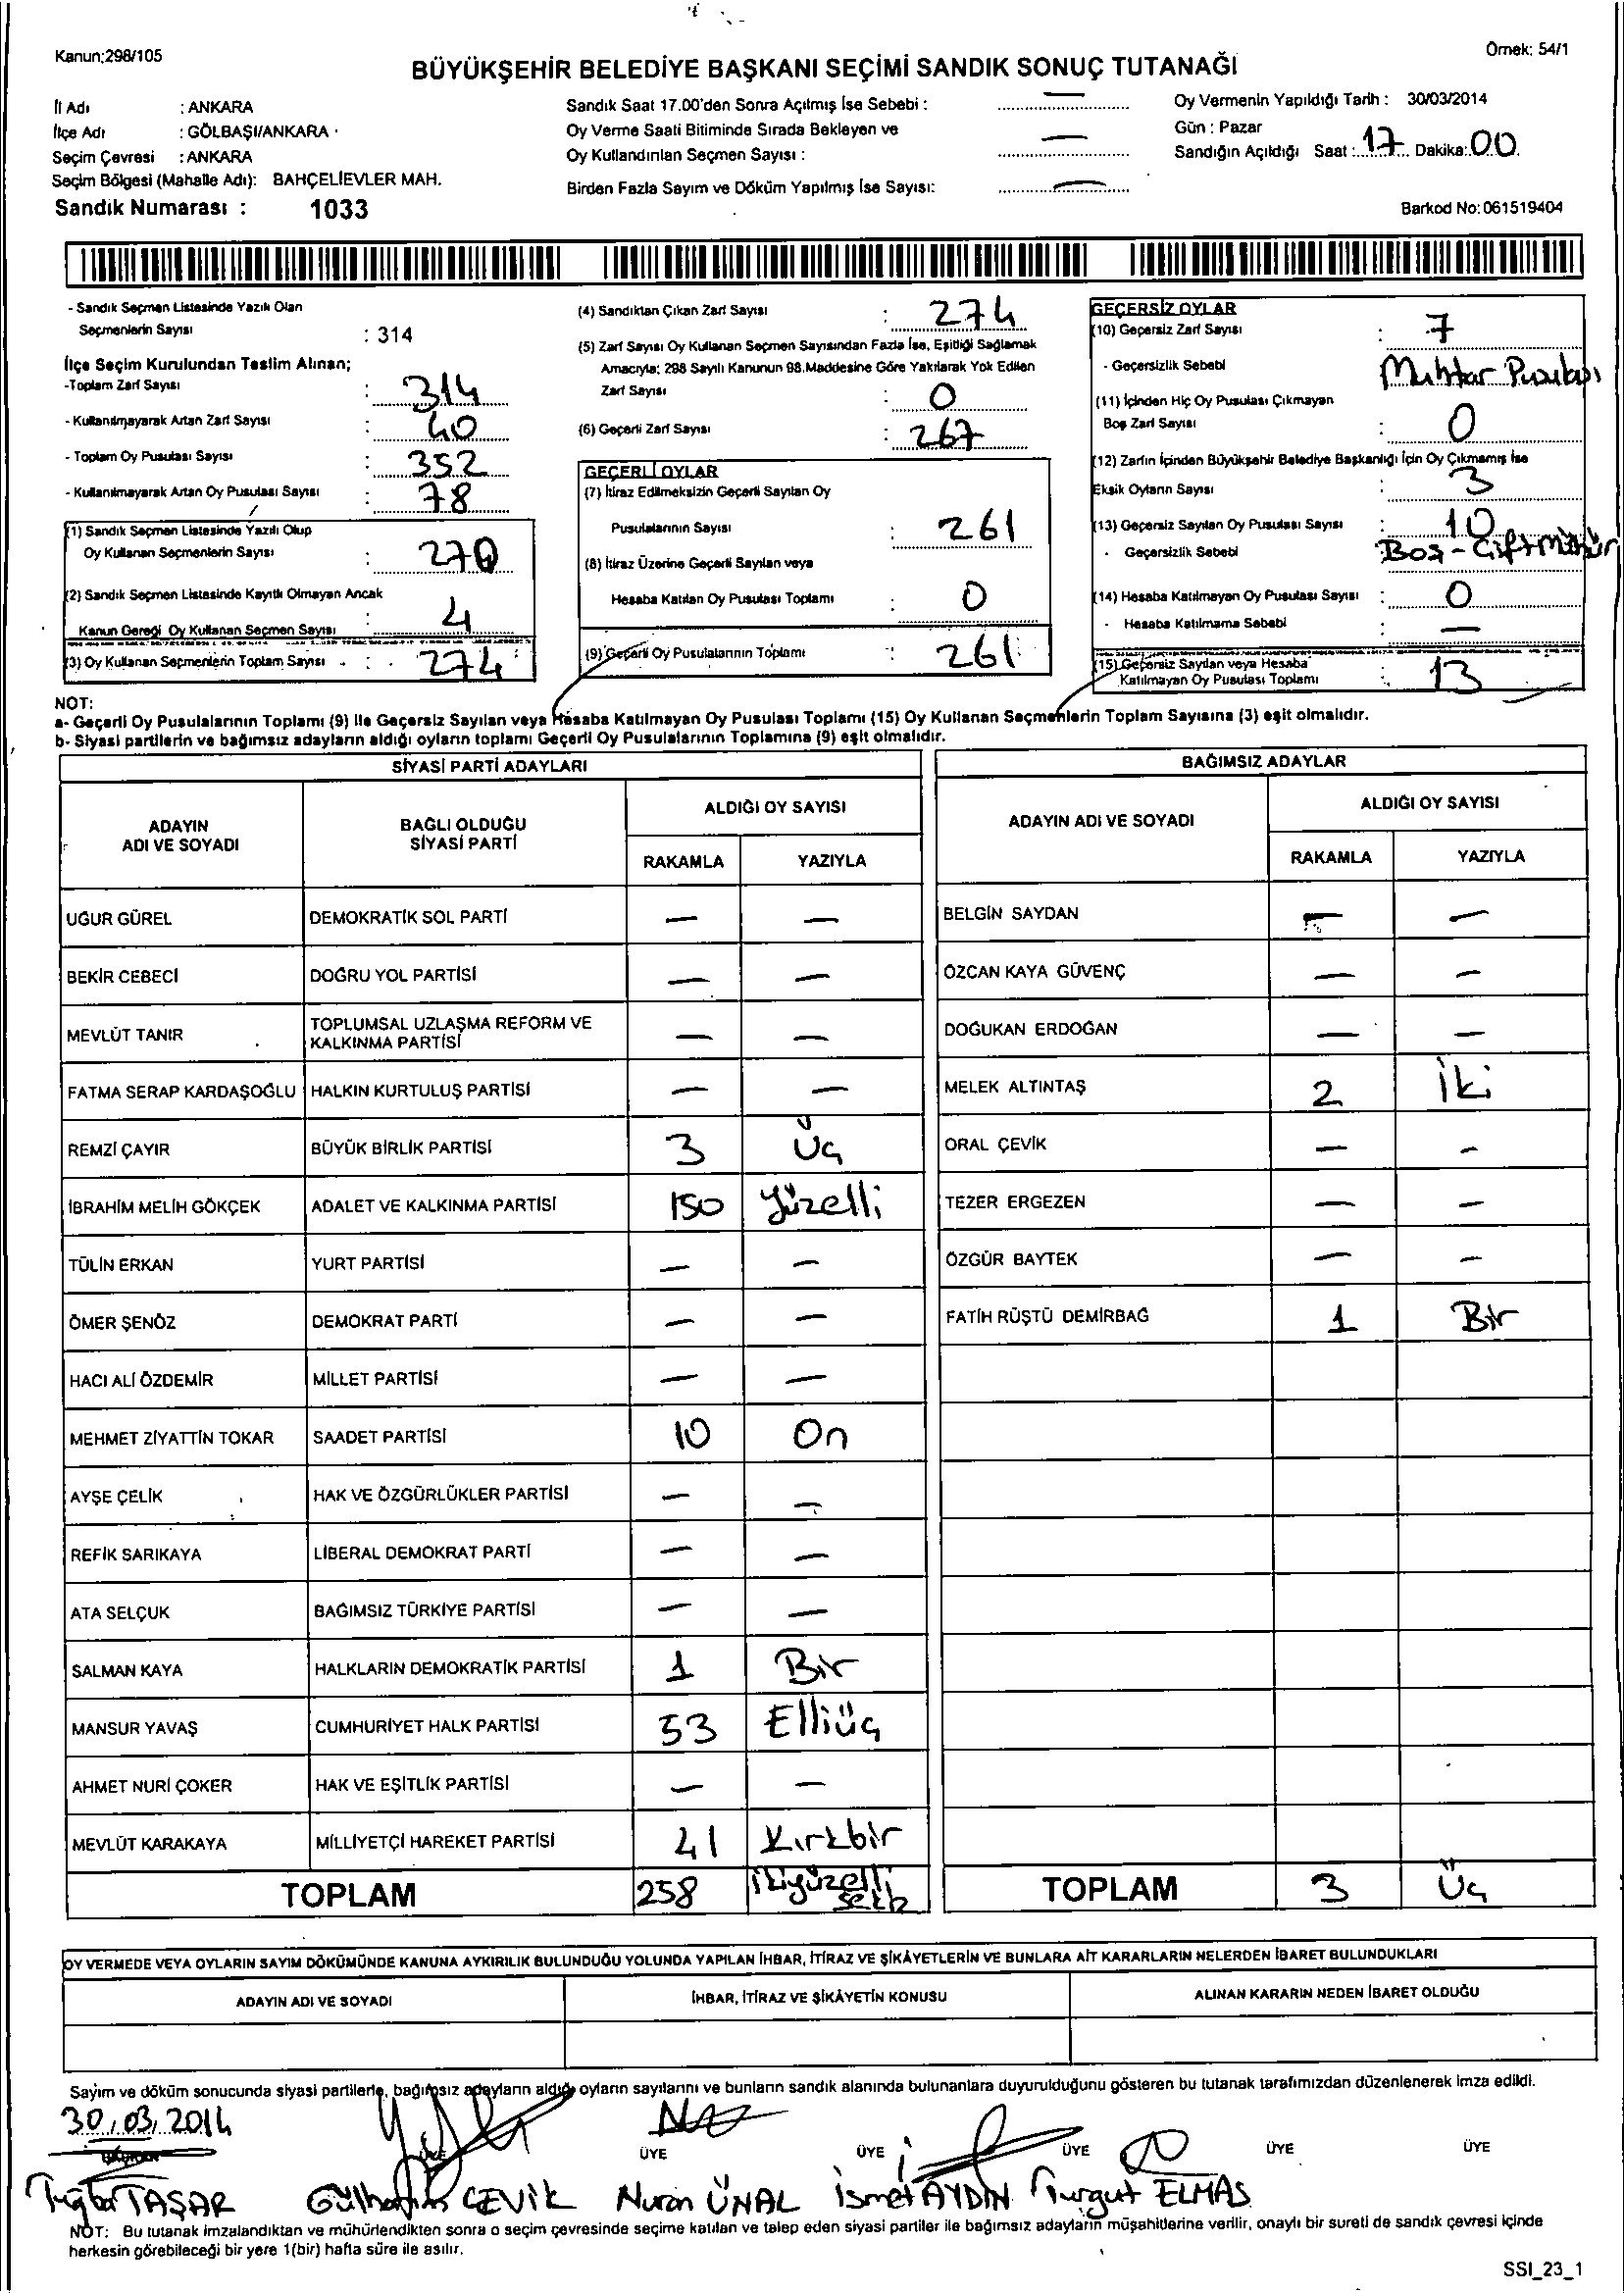 Kanun;298/105
Örnek: 54/1
BÜYÜKŞEHİR BELEDİYE BAŞKANI SEÇİMİ SANDIK SONUÇ TUTANAĞI
İl Adı : ANKARA
İlçe Adı : GÖLBAŞI/ANKARA
Seçim Çevresi : ANKARA
Seçim Bölgesi (Mahalle Adı): BAHÇELİEVLER MAH.
Sandık Numarası : 1033
Sandık Saat 17.00'den Sonra Açılmış İse Sebebi : —
Oy Verme Saati Bitiminde Sırada Bekleyen ve
Oy Kullandırılan Seçmen Sayısı : —
Birden Fazla Sayım ve Döküm Yapılmış İse Sayısı: —
Oy Vermenin Yapıldığı Tarih : 30/03/2014
Gün : Pazar
Sandığın Açıldığı Saat : 17 Dakika: 00
Barkod No: 061519404
- Sandık Seçmen Listesinde Yazılı Olan
Seçmenlerin Sayısı : 314
İlçe Seçim Kurulundan Teslim Alınan;
-Toplam Zarf Sayısı : 314
- Kullanılmayarak Artan Zarf Sayısı : 40
- Toplam Oy Pusulası Sayısı : 352
- Kullanılmayarak Artan Oy Pusulası Sayısı : 78
(1) Sandık Seçmen Listesinde Yazılı Olup
Oy Kullanan Seçmenlerin Sayısı : 270
(2) Sandık Seçmen Listesinde Kayıtlı Olmayan Ancak
Kanun Gereği Oy Kullanan Seçmen Sayısı : 4
(3) Oy Kullanan Seçmenlerin Toplam Sayısı : 274
(4) Sandıktan Çıkan Zarf Sayısı : 274
(5) Zarf Sayısı Oy Kullanan Seçmen Sayısından Fazla İse, Eşitliği Sağlamak
Amacıyla; 298 Sayılı Kanunun 98.Maddesine Göre Yakılarak Yok Edilen
Zarf Sayısı : 0
(6) Geçerli Zarf Sayısı : 267
GEÇERLİ OYLAR
(7) İtiraz Edilmeksizin Geçerli Sayılan Oy
Pusulalarının Sayısı : 261
(8) İtiraz Üzerine Geçerli Sayılan veya
Hesaba Katılan Oy Pusulası Toplamı : 0
(9) Geçerli Oy Pusulalarının Toplamı : 261
GEÇERSİZ OYLAR
(10) Geçersiz Zarf Sayısı : 7
- Geçersizlik Sebebi Muhtar Pusulası
(11) İçinden Hiç Oy Pusulası Çıkmayan
Boş Zarf Sayısı : 0
(12) Zarfın İçinden Büyükşehir Belediye Başkanlığı İçin Oy Çıkmamış İse
Eksik Oyların Sayısı : 3
(13) Geçersiz Sayılan Oy Pusulası Sayısı : 10
- Geçersizlik Sebebi : Boş - Çift Mühür
(14) Hesaba Katılmayan Oy Pusulası Sayısı : 0
- Hesaba Katılmama Sebebi : —
(15) Geçersiz Sayılan veya Hesaba
Katılmayan Oy Pusulası Toplamı : 13
NOT:
a- Geçerli Oy Pusulalarının Toplamı (9) ile Geçersiz Sayılan veya Hesaba Katılmayan Oy Pusulası Toplamı (15) Oy Kullanan Seçmenlerin Toplam Sayısına (3) eşit olmalıdır.
b- Siyasi partilerin ve bağımsız adayların aldığı oyların toplamı Geçerli Oy Pusulalarının Toplamına (9) eşit olmalıdır.
SİYASİ PARTİ ADAYLARI
ADAYIN ADI VE SOYADI BAĞLI OLDUĞU SİYASİ PARTİ ALDIĞI OY SAYISI
RAKAMLA YAZIYLA
UĞUR GÜREL DEMOKRATİK SOL PARTİ — —
BEKİR CEBECİ DOĞRU YOL PARTİSİ — —
MEVLÜT TANIR TOPLUMSAL UZLAŞMA REFORM VE KALKINMA PARTİSİ — —
FATMA SERAP KARDAŞOĞLU HALKIN KURTULUŞ PARTİSİ — —
REMZİ ÇAYIR BÜYÜK BİRLİK PARTİSİ 3 Üç
İBRAHİM MELİH GÖKÇEK ADALET VE KALKINMA PARTİSİ 150 Yüzelli
TÜLİN ERKAN YURT PARTİSİ — —
ÖMER ŞENÖZ DEMOKRAT PARTİ — —
HACI ALİ ÖZDEMİR MİLLET PARTİSİ — —
MEHMET ZİYATTİN TOKAR SAADET PARTİSİ 10 On
AYŞE ÇELİK HAK VE ÖZGÜRLÜKLER PARTİSİ — —
REFİK SARIKAYA LİBERAL DEMOKRAT PARTİ — —
ATA SELÇUK BAĞIMSIZ TÜRKİYE PARTİSİ — —
SALMAN KAYA HALKLARIN DEMOKRATİK PARTİSİ 1 Bir
MANSUR YAVAŞ CUMHURİYET HALK PARTİSİ 53 Elliüç
AHMET NURİ ÇOKER HAK VE EŞİTLİK PARTİSİ — —
MEVLÜT KARAKAYA MİLLİYETÇİ HAREKET PARTİSİ 41 Kırkbir
TOPLAM 258 İkiyüzelli sekiz
BAĞIMSIZ ADAYLAR
ADAYIN ADI VE SOYADI ALDIĞI OY SAYISI
RAKAMLA YAZIYLA
BELGİN SAYDAN — —
ÖZCAN KAYA GÜVENÇ — —
DOĞUKAN ERDOĞAN — —
MELEK ALTINTAŞ 2 İki
ORAL ÇEVİK — -
TEZER ERGEZEN — —
ÖZGÜR BAYTEK — -
FATİH RÜŞTÜ DEMİRBAĞ 1 Bir
TOPLAM 3 Üç
OY VERMEDE VEYA OYLARIN SAYIM DÖKÜMÜNDE KANUNA AYKIRILIK BULUNDUĞU YOLUNDA YAPILAN İHBAR, İTİRAZ VE ŞİKÂYETLERİN VE BUNLARA AİT KARARLARIN NELERDEN İBARET BULUNDUKLARI
ADAYIN ADI VE SOYADI İHBAR, İTİRAZ VE ŞİKÂYETİN KONUSU ALINAN KARARIN NEDEN İBARET OLDUĞU
Sayım ve döküm sonucunda siyasi partilerle, bağımsız adayların aldığı oyların sayılarını ve bunların sandık alanında bulunanlara duyurulduğunu gösteren bu tutanak tarafımızdan düzenlenerek imza edildi.
30/03/2014
BAŞKAN ÜYE ÜYE ÜYE ÜYE ÜYE ÜYE
Tuğba TAŞAR Gülhanım ÇEVİK Nuran ÜNAL İsmet AYDIN Turgut ELMAS
NOT: Bu tutanak imzalandıktan ve mühürlendikten sonra o seçim çevresinde seçime katılan ve talep eden siyasi partiler ile bağımsız adayların müşahitlerine verilir, onaylı bir sureti de sandık çevresi içinde
herkesin görebileceği bir yere 1(bir) hafta süre ile asılır.
SSI_23_1